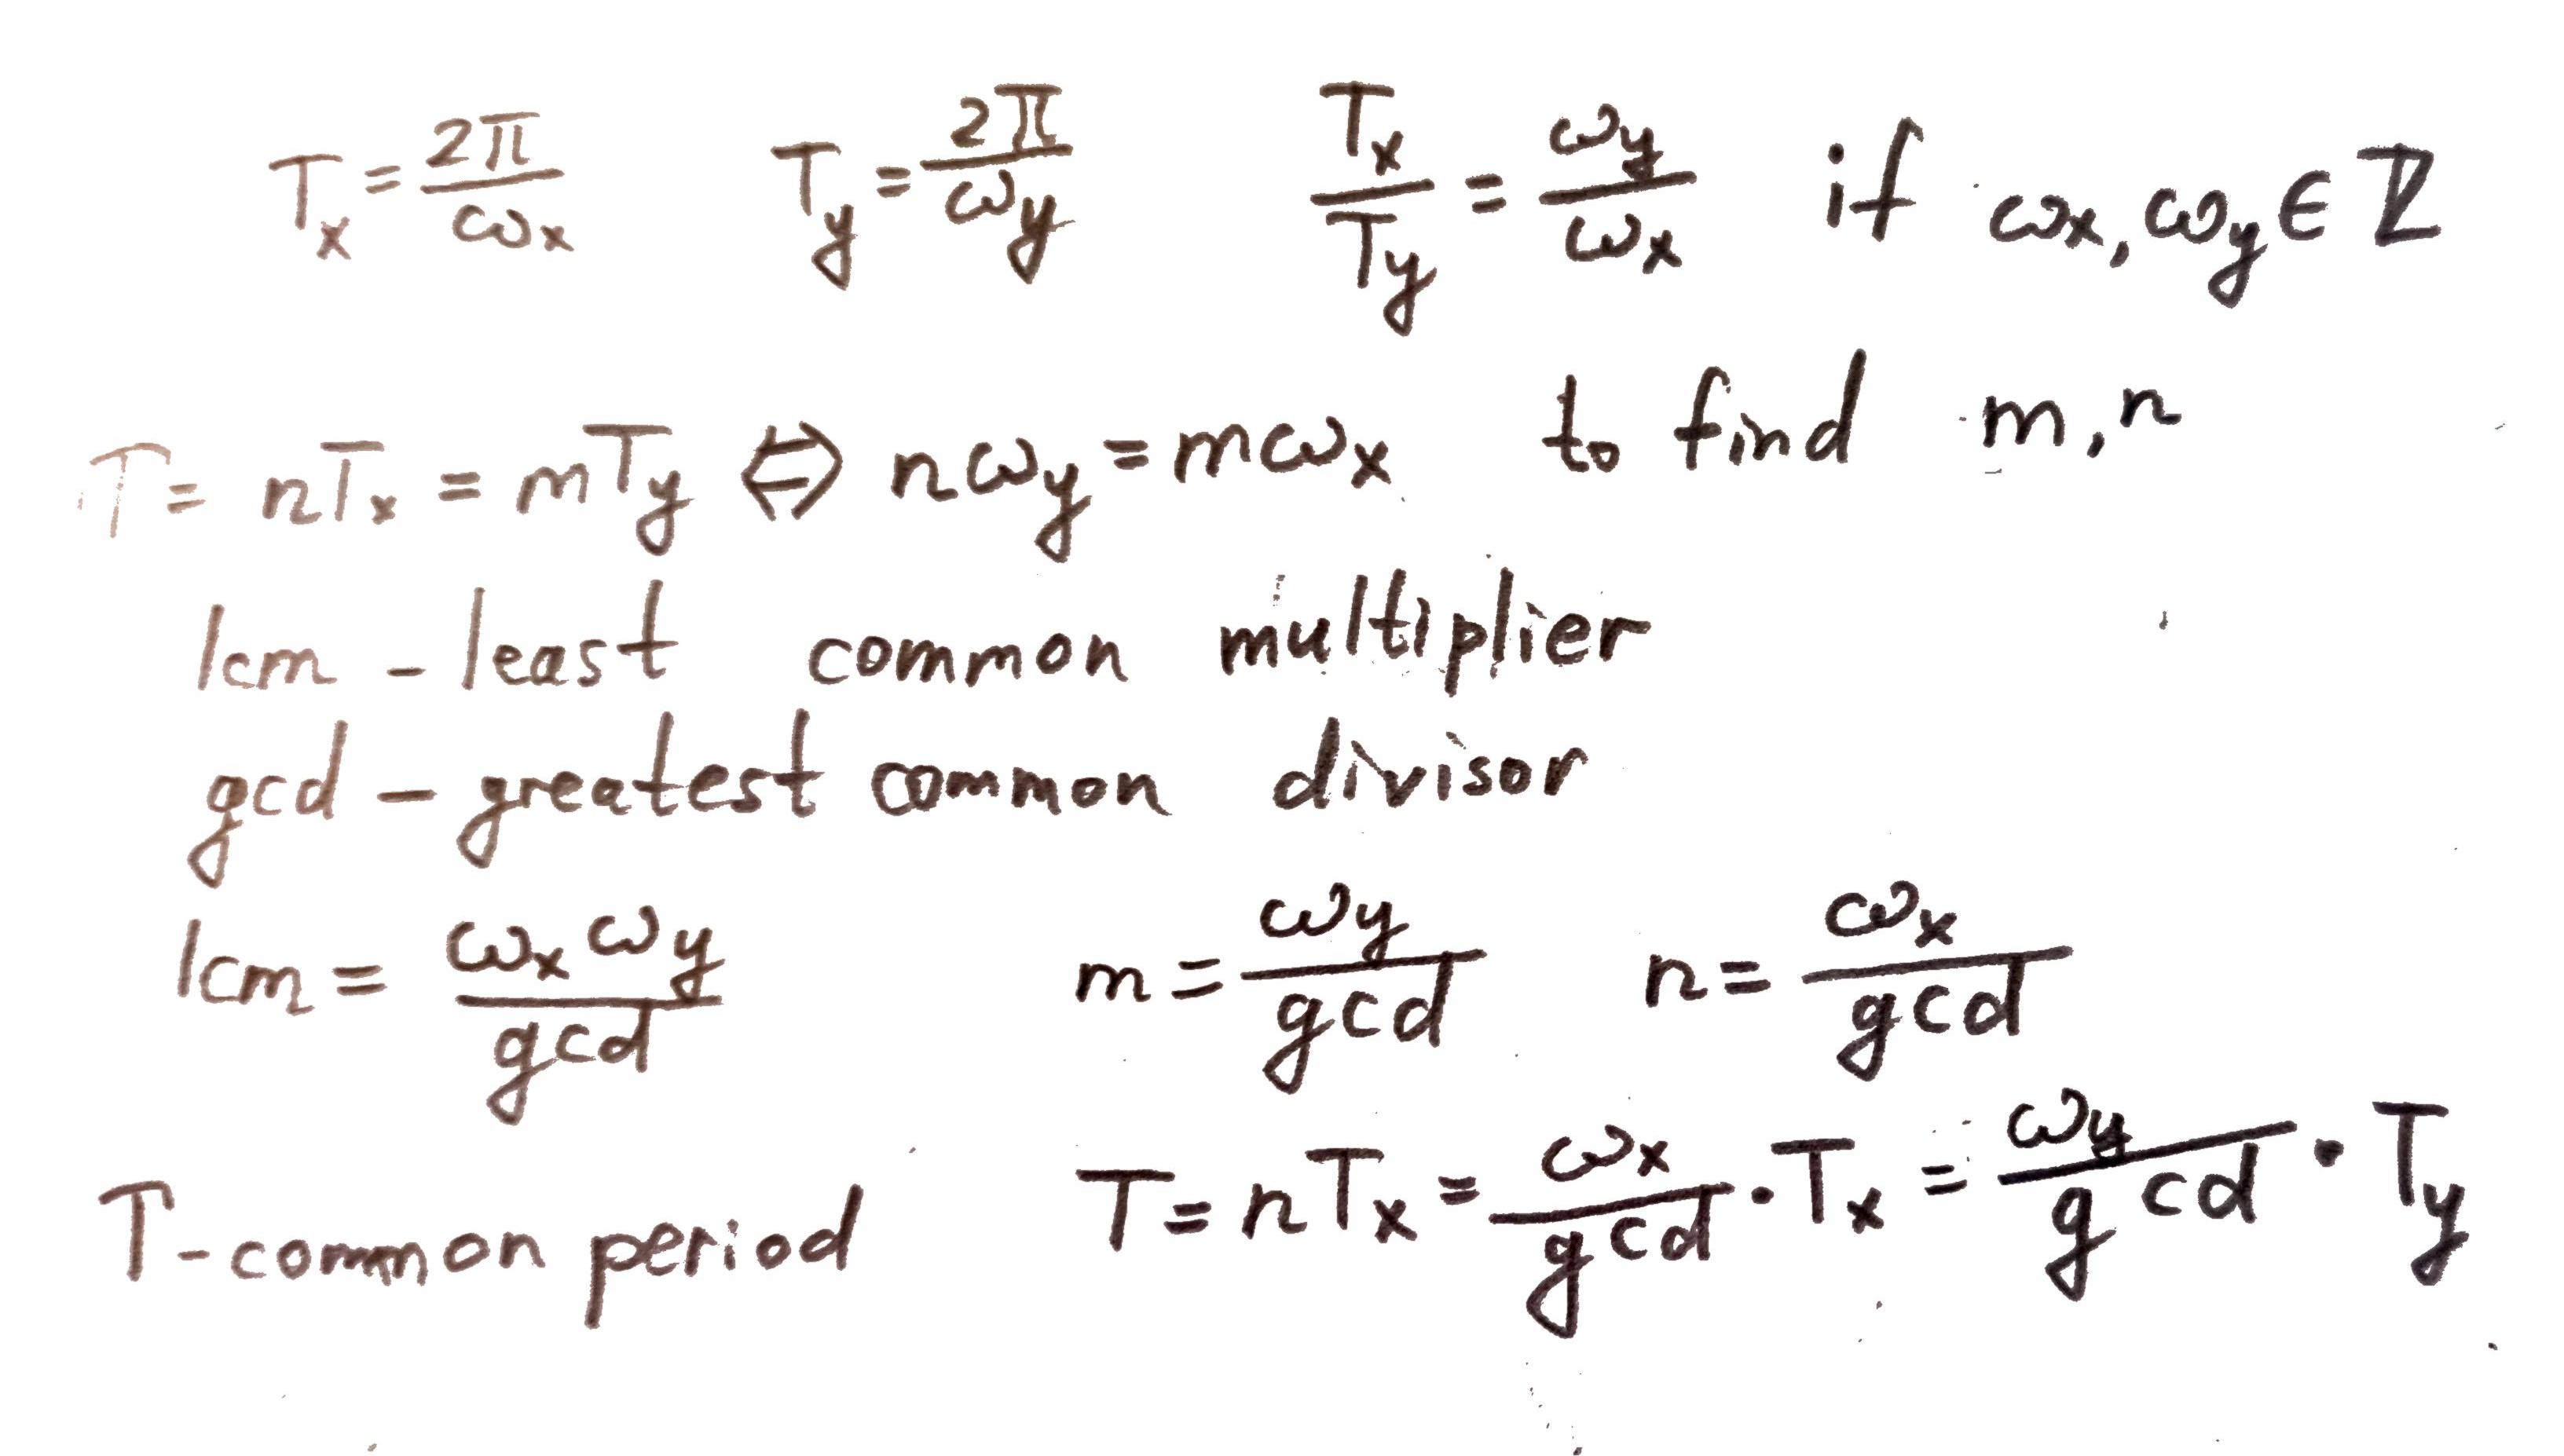 Tx = 2π/ωx Ty = 2π/ωy Tx/Ty = ωy/ωx if ωx, ωy ∈ ℤ
T = nTx = mTy ⇔ nωy = mωx to find m, n
lcm - least common multiplier
gcd - greatest common divisor
lcm = ωx ωy/gcd m = ωy/gcd n = ωx/gcd
T - common period T = nTx = ωx/gcd · Tx = ωy/gcd · Ty